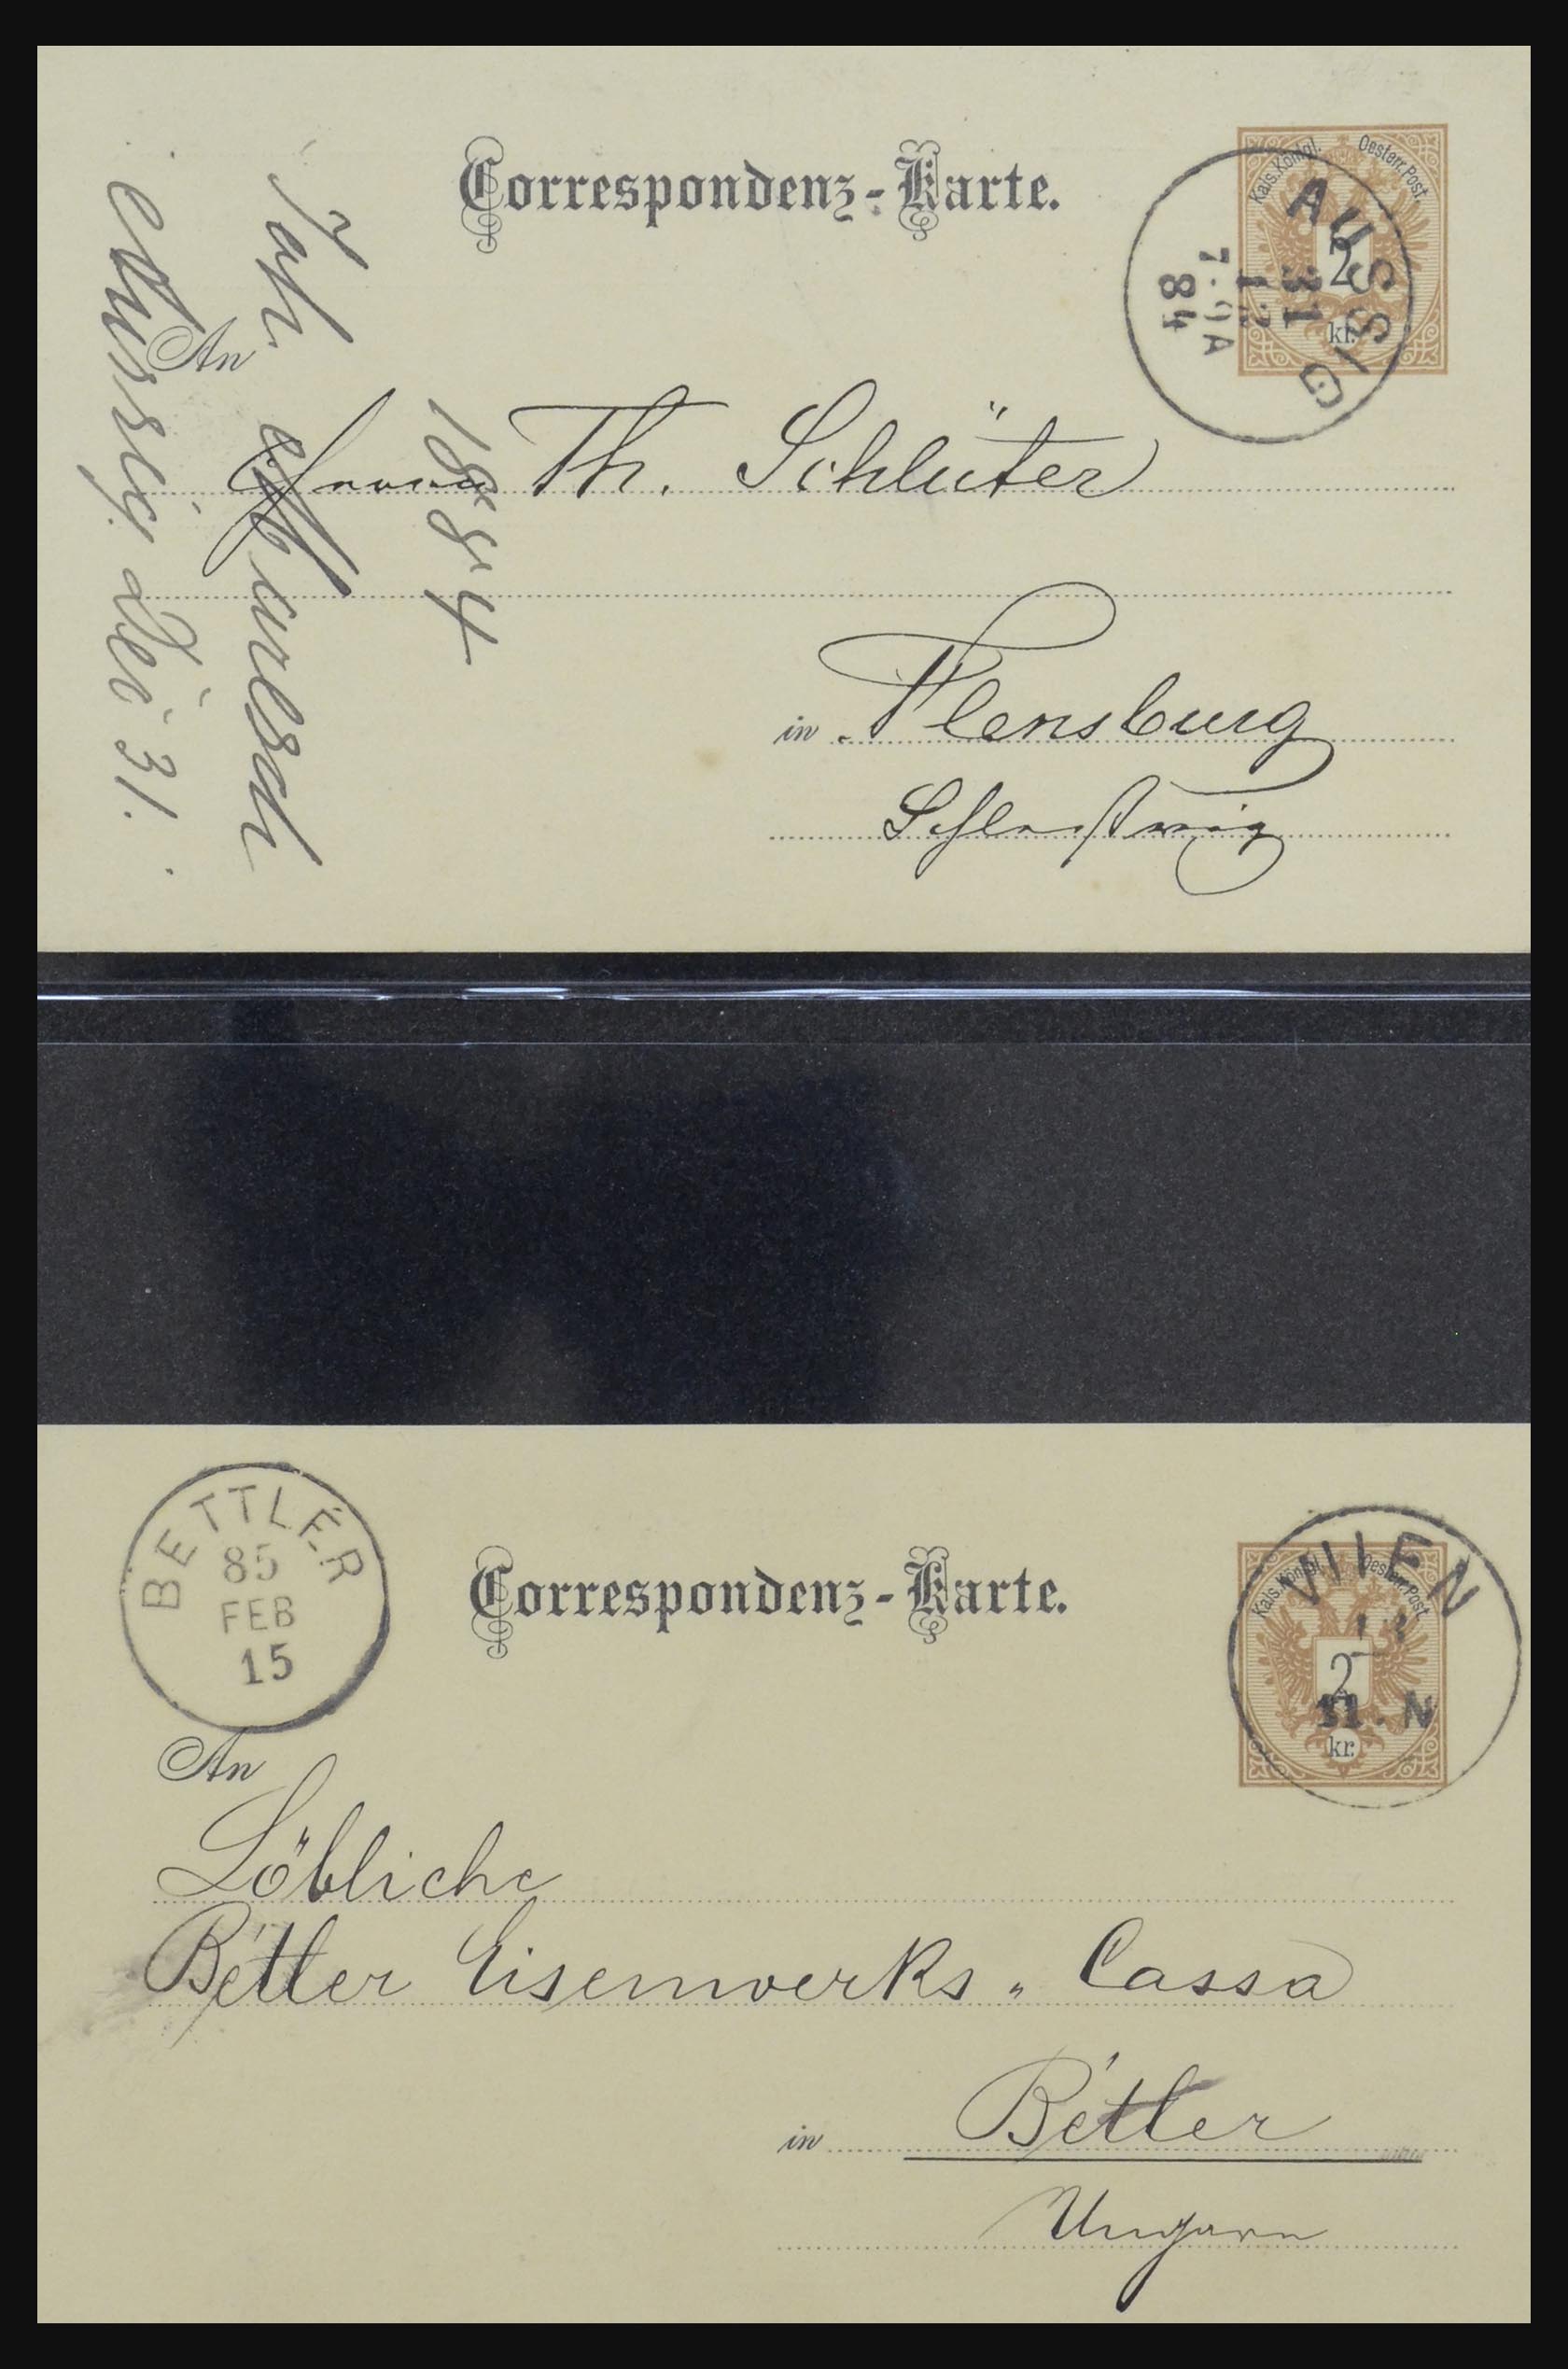 Correspondenz-Karte.
Kais. Königl. Oesterr. Post.
2
kr.
AUSSIG
31
12
7-9A
84
An
Herrn Th. Schlüter
in Flensburg
Schleswig
Joh.
1884
31.
BETTLÉR
85
FEB
15
Correspondenz-Karte.
Kais. Königl. Oesterr. Post.
2
kr.
WIEN
11. N
An
Löbliche
Bétler Eisenwerks " Cassa
in Bétler
Ungarn